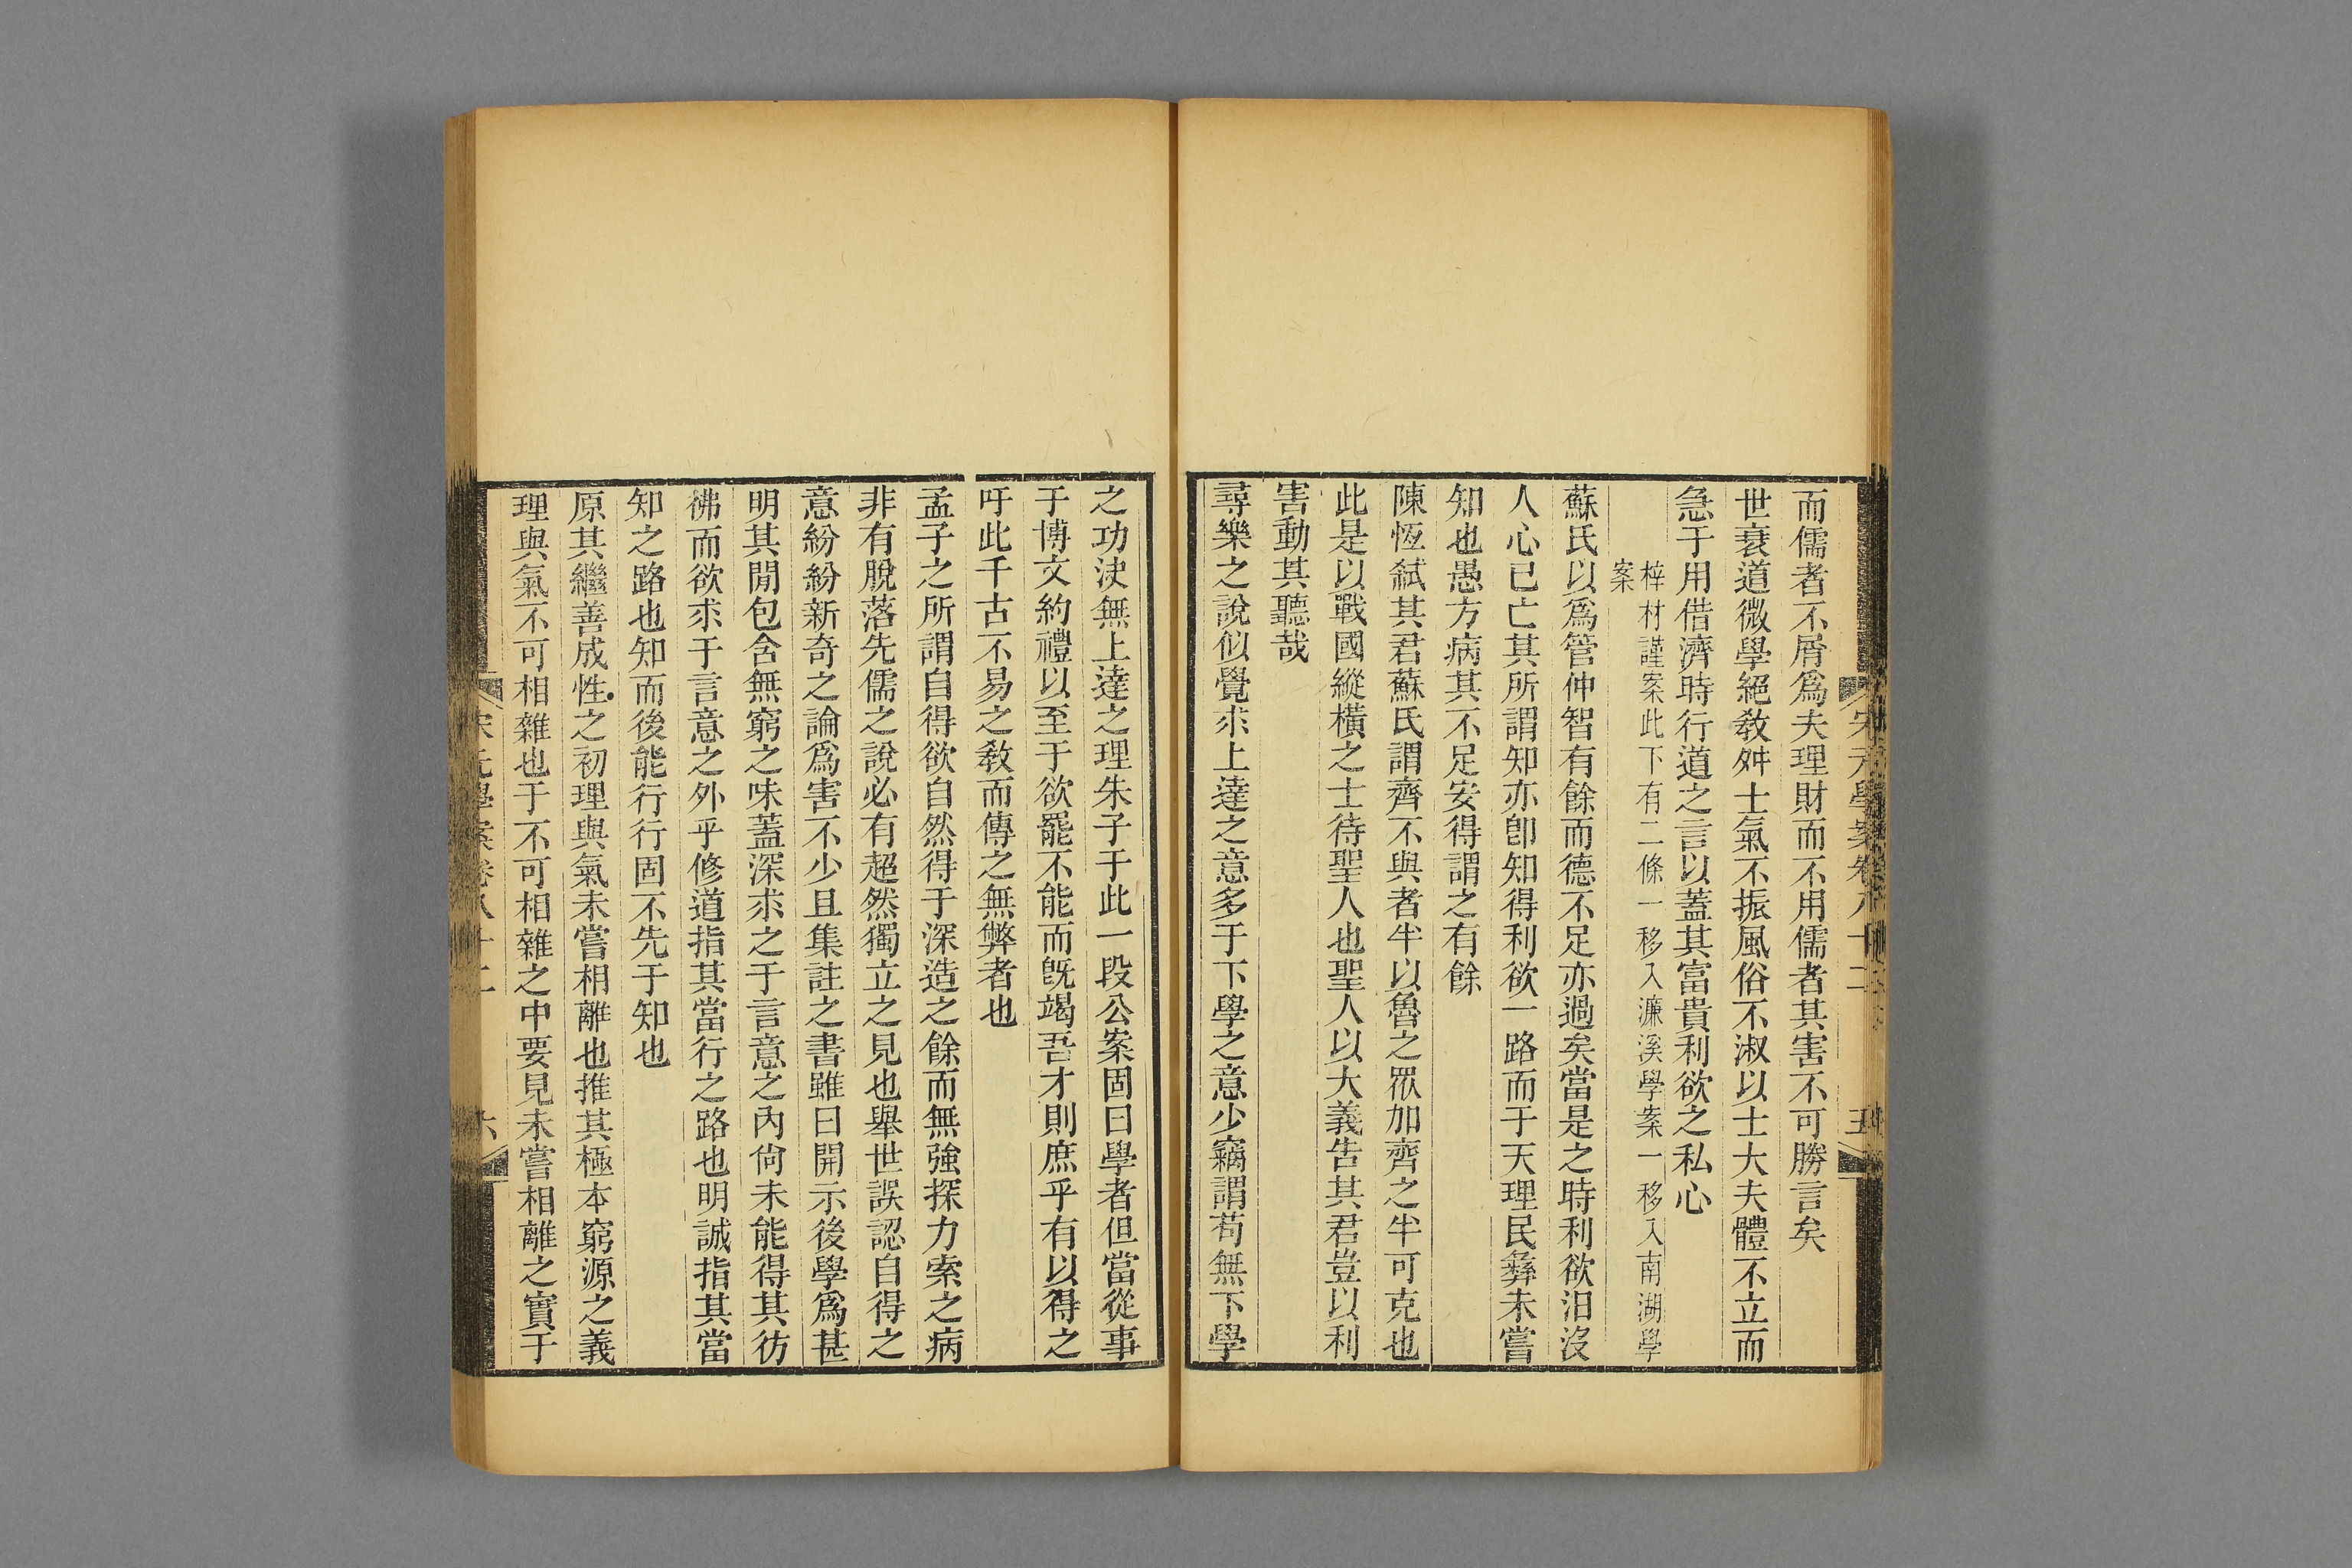 而儒者不屑爲夫理財而不用儒者其害不可勝言矣
世衰道微學絕敎舛士氣不振風俗不淑以士大夫體不立而
急于用借濟時行道之言以蓋其富貴利欲之私心
梓材謹案此下有二條一移入濂溪學案一移入南湖學
案
蘇氏以爲管仲智有餘而德不足亦過矣當是之時利欲汩沒
人心已亡其所謂知亦卽知得利欲一路而于天理民彝未嘗
知也愚方病其不足安得謂之有餘
陳恆弑其君蘇氏謂齊不與者半以魯之眾加齊之半可克也
此是以戰國縱橫之士待聖人也聖人以大義告其君豈以利
害動其聽哉
尋樂之說似覺求上達之意多于下學之意少竊謂苟無下學
之功決無上達之理朱子于此一段公案固曰學者但當從事
于博文約禮以至于欲罷不能而旣竭吾才則庶乎有以得之
吁此千古不易之敎而傳之無弊者也
孟子之所謂自得欲自然得于深造之餘而無強探力索之病
非有脫落先儒之說必有超然獨立之見也舉世誤認自得之
意紛紛新奇之論爲害不少且集註之書雖曰開示後學爲甚
明其閒包含無窮之味蓋深求之于言意之內尙未能得其彷
彿而欲求于言意之外乎修道指其當行之路也明誠指其當
知之路也知而後能行行固不先于知也
原其繼善成性之初理與氣未嘗相離也推其極本窮源之義
理與氣不可相雜也于不可相雜之中要見未嘗相離之實于
宋元學案卷八十二
六